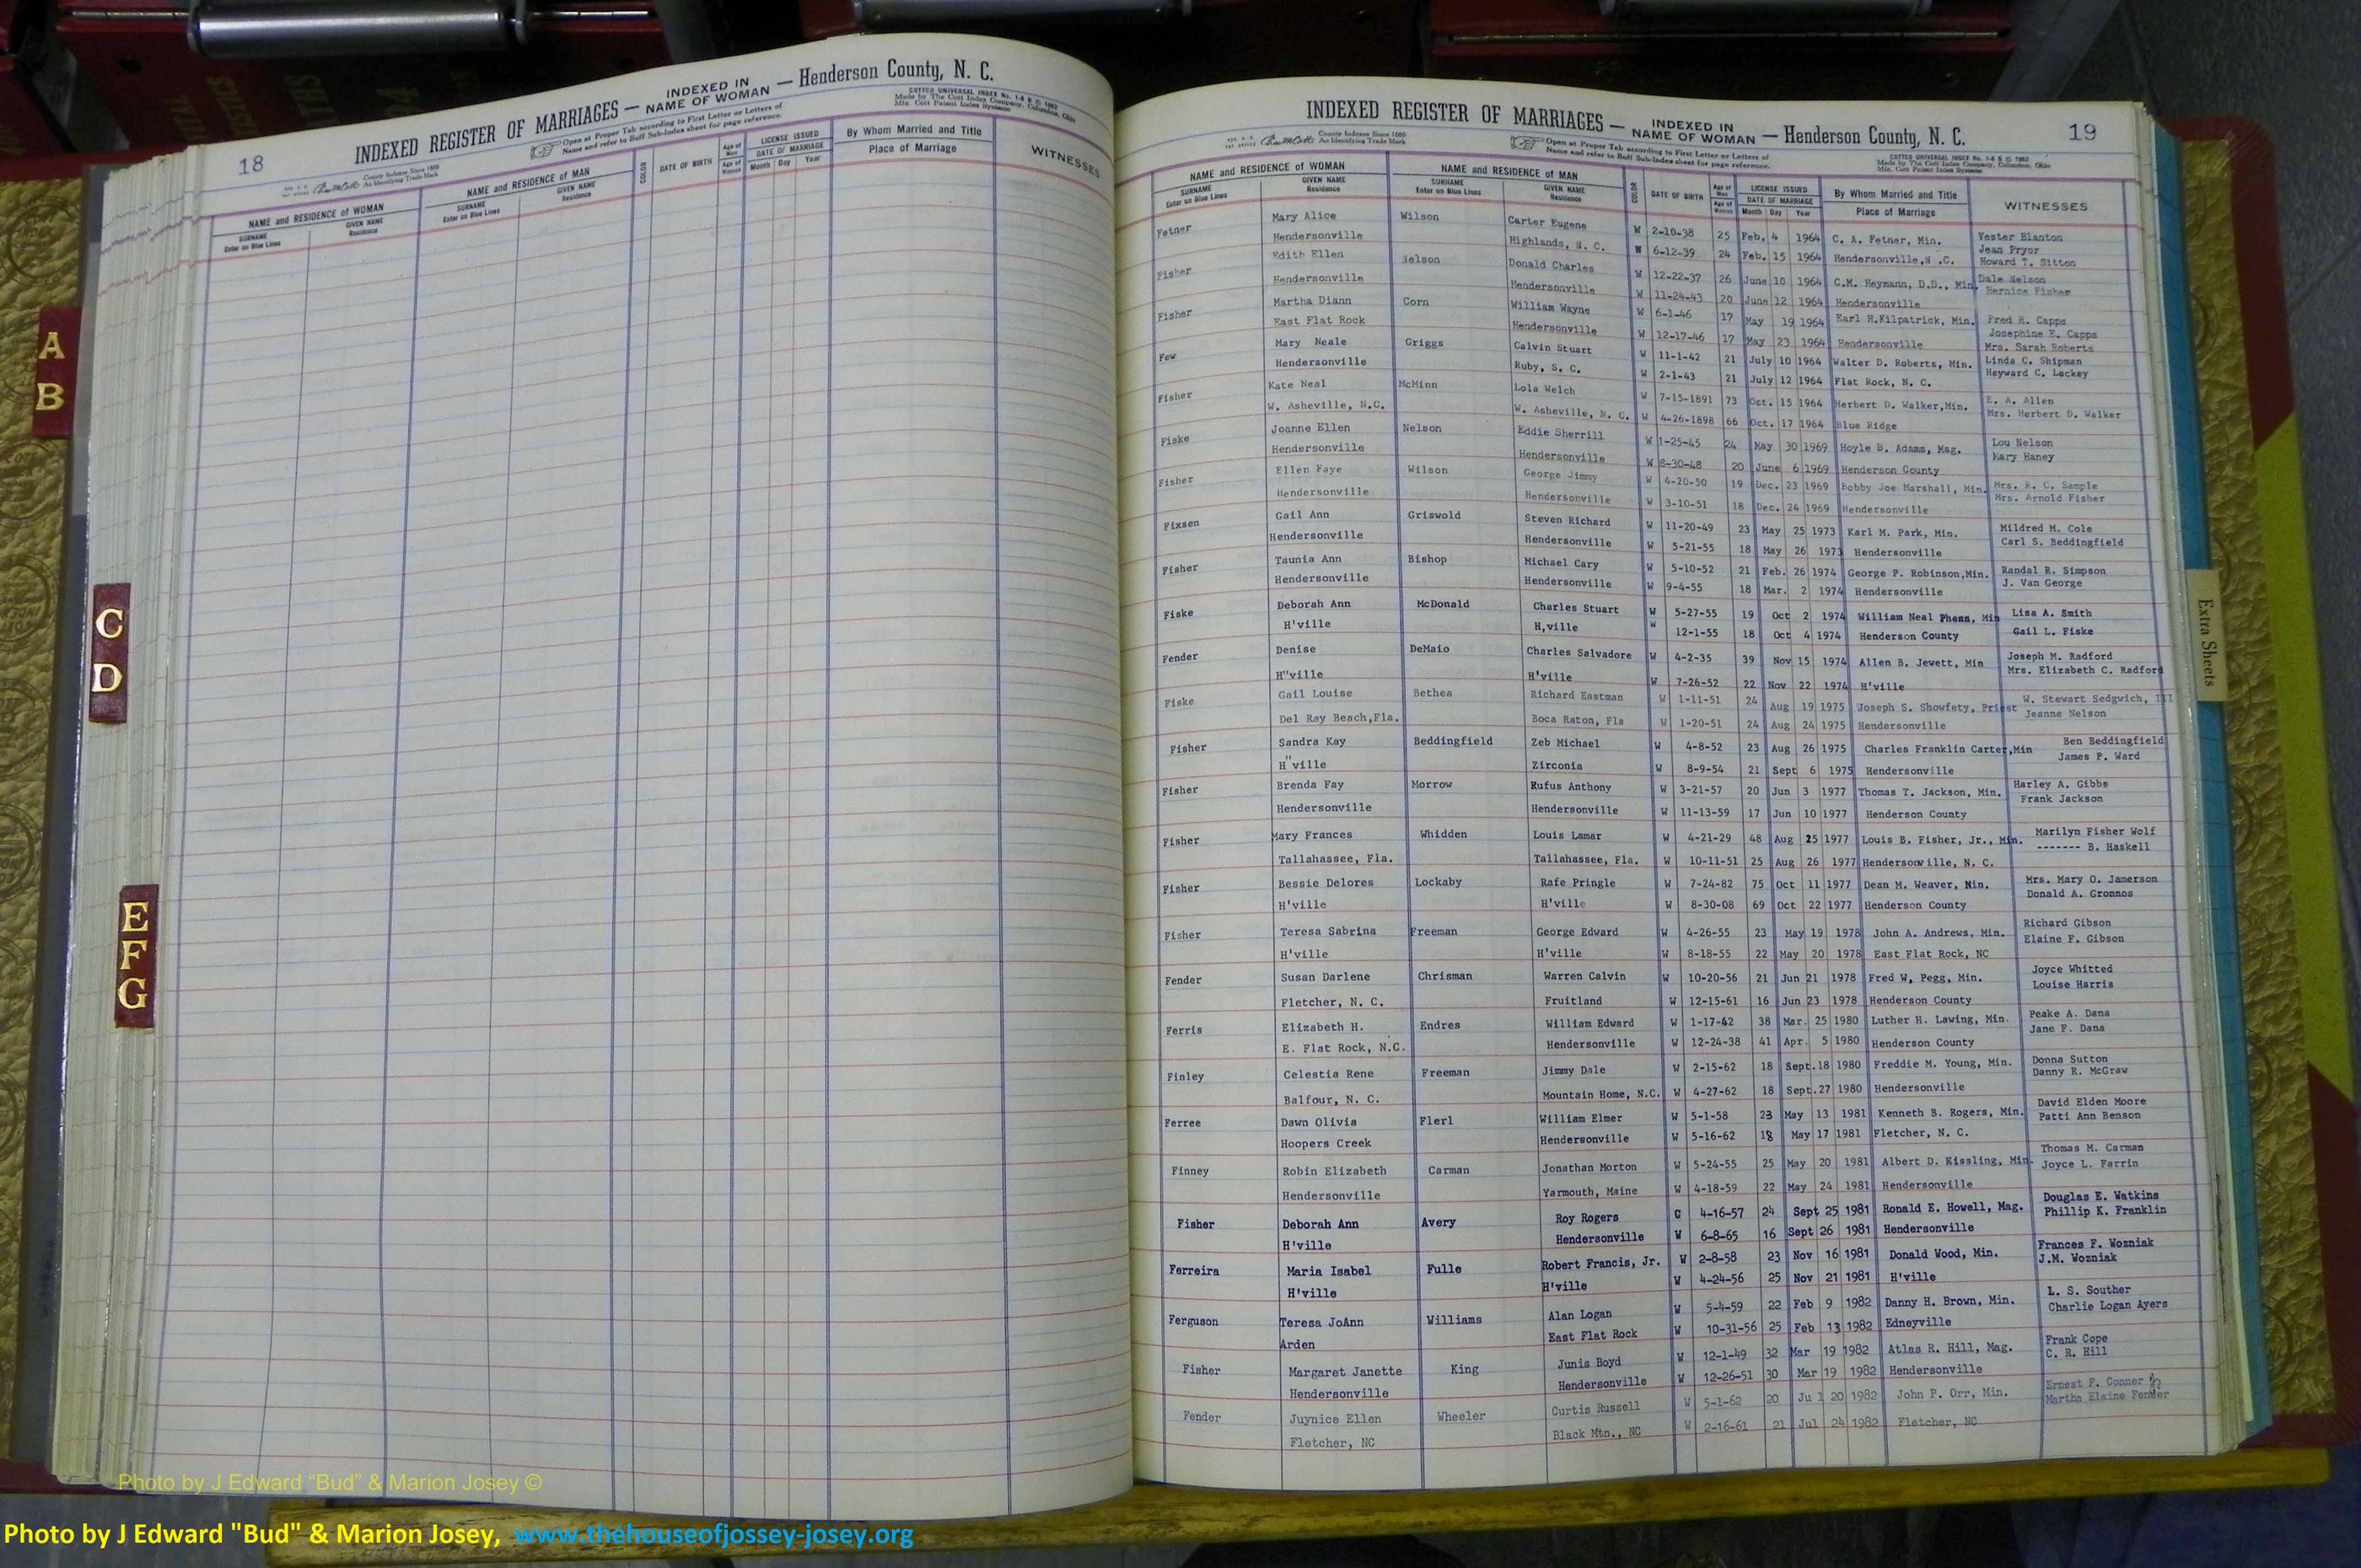 18
INDEXED REGISTER OF MARRIAGES — INDEXED IN NAME OF WOMAN — Henderson County, N. C.
Open at Proper Tab according to First Letter or Letters of
Name and refer to Buff Sub-Index sheet for page reference.
COTTCO UNIVERSAL INDEX No. 1-6 D © 1962
Made by The Cott Index Company, Columbus, Ohio
Mfr. Cott Patent Index Systems
County Indexes Since 1888
An Identifying Trade Mark
NAME and RESIDENCE of WOMAN NAME and RESIDENCE OF MAN COLOR DATE OF BIRTH Age of Man LICENSE ISSUED By Whom Married and Title WITNESSES
SURNAME GIVEN NAME SURNAME GIVEN NAME Age of Woman DATE OF MARRIAGE Place of Marriage
Enter on Blue Lines Residence Enter on Blue Lines Residence Month Day Year
INDEXED REGISTER OF MARRIAGES — INDEXED IN NAME OF WOMAN — Henderson County, N. C. 19
County Indexes Since 1888
An Identifying Trade Mark
Open at Proper Tab according to First Letter or Letters of
Name and refer to Buff Sub-Index sheet for page reference.
Made by The Cott Index Company, Columbus, Ohio
Mfr. Cott Patent Index Systems
NAME and RESIDENCE of WOMAN NAME and RESIDENCE OF MAN COLOR DATE OF BIRTH Age of Man LICENSE ISSUED By Whom Married and Title WITNESSES
SURNAME GIVEN NAME SURNAME GIVEN NAME Age of Woman DATE OF MARRIAGE Place of Marriage
Enter on Blue Lines Residence Enter on Blue Lines Residence Month Day Year
Fetner Mary Alice Wilson Carter Eugene W 2-10-38 25 Feb. 4 1964 C. A. Fetner, Min. Vester Blanton
Jean Pryor
Hendersonville Highlands, N. C. W 6-12-39 24 Feb. 15 1964 Hendersonville,N .C. Howard T. Sitton
Fisher Edith Ellen Nelson Donald Charles W 12-22-37 26 June 10 1964 C.M. Heymann, D.D., Min. Dale Nelson
Hendersonville Hendersonville W 11-24-43 20 June 12 1964 Hendersonville Bernice Fisher
Fisher Martha Diann Corn William Wayne W 6-1-46 17 May 19 1964 Earl H.Kilpatrick, Min. Fred R. Capps
Josephine E. Capps
East Flat Rock Hendersonville W 12-17-46 17 May 23 1964 Hendersonville Mrs. Sarah Roberts
Few Mary Neale Griggs Calvin Stuart W 11-1-42 21 July 10 1964 Walter D. Roberts, Min. Linda C. Shipman
Hendersonville Ruby, S. C. W 2-1-43 21 July 12 1964 Flat Rock, N. C. Heyward C. Lackey
Fisher Kate Neal McMinn Lola Welch W 7-15-1891 73 Oct. 15 1964 Herbert D. Walker,Min. E. A. Allen
W. Asheville, N.C. W. Asheville, N. C. W 4-26-1898 66 Oct. 17 1964 Blue Ridge Mrs. Herbert D. Walker
Fiske Joanne Ellen Nelson Eddie Sherrill W 1-25-45 24 May 30 1969 Hoyle B. Adams, Mag. Lou Nelson
Hendersonville Hendersonville W 8-30-48 20 June 6 1969 Henderson County Mary Haney
Fisher Ellen Faye Wilson George Jimmy W 4-20-50 19 Dec. 23 1969 Bobby Joe Marshall, Min. Mrs. R. C. Sample
Hendersonville Hendersonville W 3-10-51 18 Dec. 24 1969 Hendersonville Mrs. Arnold Fisher
Fixsen Gail Ann Griswold Steven Richard W 11-20-49 23 May 25 1973 Karl M. Park, Min. Mildred M. Cole
Hendersonville Hendersonville W 5-21-55 18 May 26 1973 Hendersonville Carl S. Beddingfield
Fisher Taunia Ann Bishop Michael Cary W 5-10-52 21 Feb. 26 1974 George P. Robinson,Min. Randal R. Simpson
Hendersonville Hendersonville W 9-4-55 18 Mar. 2 1974 Hendersonville J. Van George
Fiske Deborah Ann McDonald Charles Stuart W 5-27-55 19 Oct 2 1974 William Neal Phenn, Min Lisa A. Smith
H'ville H,ville W 12-1-55 18 Oct 4 1974 Henderson County Gail L. Fiske
Fender Denise DeMaio Charles Salvadore W 4-2-35 39 Nov 15 1974 Allen B. Jewett, Min Joseph M. Radford
H"ville H'ville W 7-26-52 22 Nov 22 1974 H'ville Mrs. Elizabeth C. Radford
Fiske Gail Louise Bethea Richard Eastman W 1-11-51 24 Aug 19 1975 Joseph S. Showfety, Priest W. Stewart Sedgwich, III
Del Ray Beach,Fla. Boca Raton, Fla W 1-20-51 24 Aug 24 1975 Hendersonville Jeanne Nelson
Fisher Sandra Kay Beddingfield Zeb Michael W 4-8-52 23 Aug 26 1975 Charles Franklin Carter,Min Ben Beddingfield
H"ville Zirconia W 8-9-54 21 Sept 6 1975 Hendersonville James P. Ward
Fisher Brenda Fay Morrow Rufus Anthony W 3-21-57 20 Jun 3 1977 Thomas T. Jackson, Min. Harley A. Gibbs
Hendersonville Hendersonville W 11-13-59 17 Jun 10 1977 Henderson County Frank Jackson
Fisher Mary Frances Whidden Louis Lamar W 4-21-29 48 Aug 25 1977 Louis B. Fisher, Jr., Min. Marilyn Fisher Wolf
Tallahassee, Fla. Tallahassee, Fla. W 10-11-51 25 Aug 26 1977 Hendersonville, N. C. ------- B. Haskell
Fisher Bessie Delores Lockaby Rafe Pringle W 7-24-82 75 Oct 11 1977 Dean M. Weaver, Min. Mrs. Mary O. Jamerson
H'ville H'ville W 8-30-08 69 Oct 22 1977 Henderson County Donald A. Gronnos
Fisher Teresa Sabrina Freeman George Edward W 4-26-55 23 May 19 1978 John A. Andrews, Min. Richard Gibson
H'ville H'ville W 8-18-55 22 May 20 1978 East Flat Rock, NC Elaine F. Gibson
Fender Susan Darlene Chrisman Warren Calvin W 10-20-56 21 Jun 21 1978 Fred W, Pegg, Min. Joyce Whitted
Fletcher, N. C. Fruitland W 12-15-61 16 Jun 23 1978 Henderson County Louise Harris
Ferris Elizabeth H. Endres William Edward W 1-17-42 38 Mar. 25 1980 Luther H. Lawing, Min. Peake A. Dana
E. Flat Rock, N.C. Hendersonville W 12-24-38 41 Apr. 5 1980 Henderson County Jane F. Dana
Finley Celestia Rene Freeman Jimmy Dale W 2-15-62 18 Sept.18 1980 Freddie M. Young, Min. Donna Sutton
Balfour, N. C. Mountain Home, N.C. W 4-27-62 18 Sept.27 1980 Hendersonville Danny R. McGraw
Ferree Dawn Olivia Flerl William Elmer W 5-1-58 23 May 13 1981 Kenneth B. Rogers, Min. David Elden Moore
Hoopers Creek Hendersonville W 5-16-62 18 May 17 1981 Fletcher, N. C. Patti Ann Benson
Finney Robin Elizabeth Carman Jonathan Morton W 5-24-55 25 May 20 1981 Albert D. Kissling, Min. Thomas M. Carman
Hendersonville Yarmouth, Maine W 4-18-59 22 May 24 1981 Hendersonville Joyce L. Farrin
Fisher Deborah Ann Avery Roy Rogers C 4-16-57 24 Sept 25 1981 Ronald E. Howell, Mag. Douglas E. Watkins
H'ville Hendersonville W 6-8-65 16 Sept 26 1981 Hendersonville Phillip K. Franklin
Ferreira Maria Isabel Fulle Robert Francis, Jr. W 2-8-58 23 Nov 16 1981 Donald Wood, Min. Frances F. Wozniak
H'ville H'ville W 4-24-56 25 Nov 21 1981 H'ville J.M. Wozniak
Ferguson Teresa JoAnn Williams Alan Logan W 5-4-59 22 Feb 9 1982 Danny H. Brown, Min. L. S. Souther
Arden East Flat Rock W 10-31-56 25 Feb 13 1982 Edneyville Charlie Logan Ayers
Fisher Margaret Janette King Junis Boyd W 12-1-49 32 Mar 19 1982 Atlas R. Hill, Mag. Frank Cope
Hendersonville Hendersonville W 12-26-51 30 Mar 19 1982 Hendersonville C. R. Hill
Fender Juynice Ellen Wheeler Curtis Russell W 5-1-62 20 Ju l 20 1982 John P. Orr, Min. Ernest F. Conner
Fletcher, NC Black Mtn., NC W 2-16-61 21 Jul 24 1982 Fletcher, NC Martha Elaine Fender
A
B
C
D
E
F
G
Extra Sheets
Photo by J Edward “Bud” & Marion Josey ©
Photo by J Edward "Bud" & Marion Josey, www.thehouseofjossey-josey.org